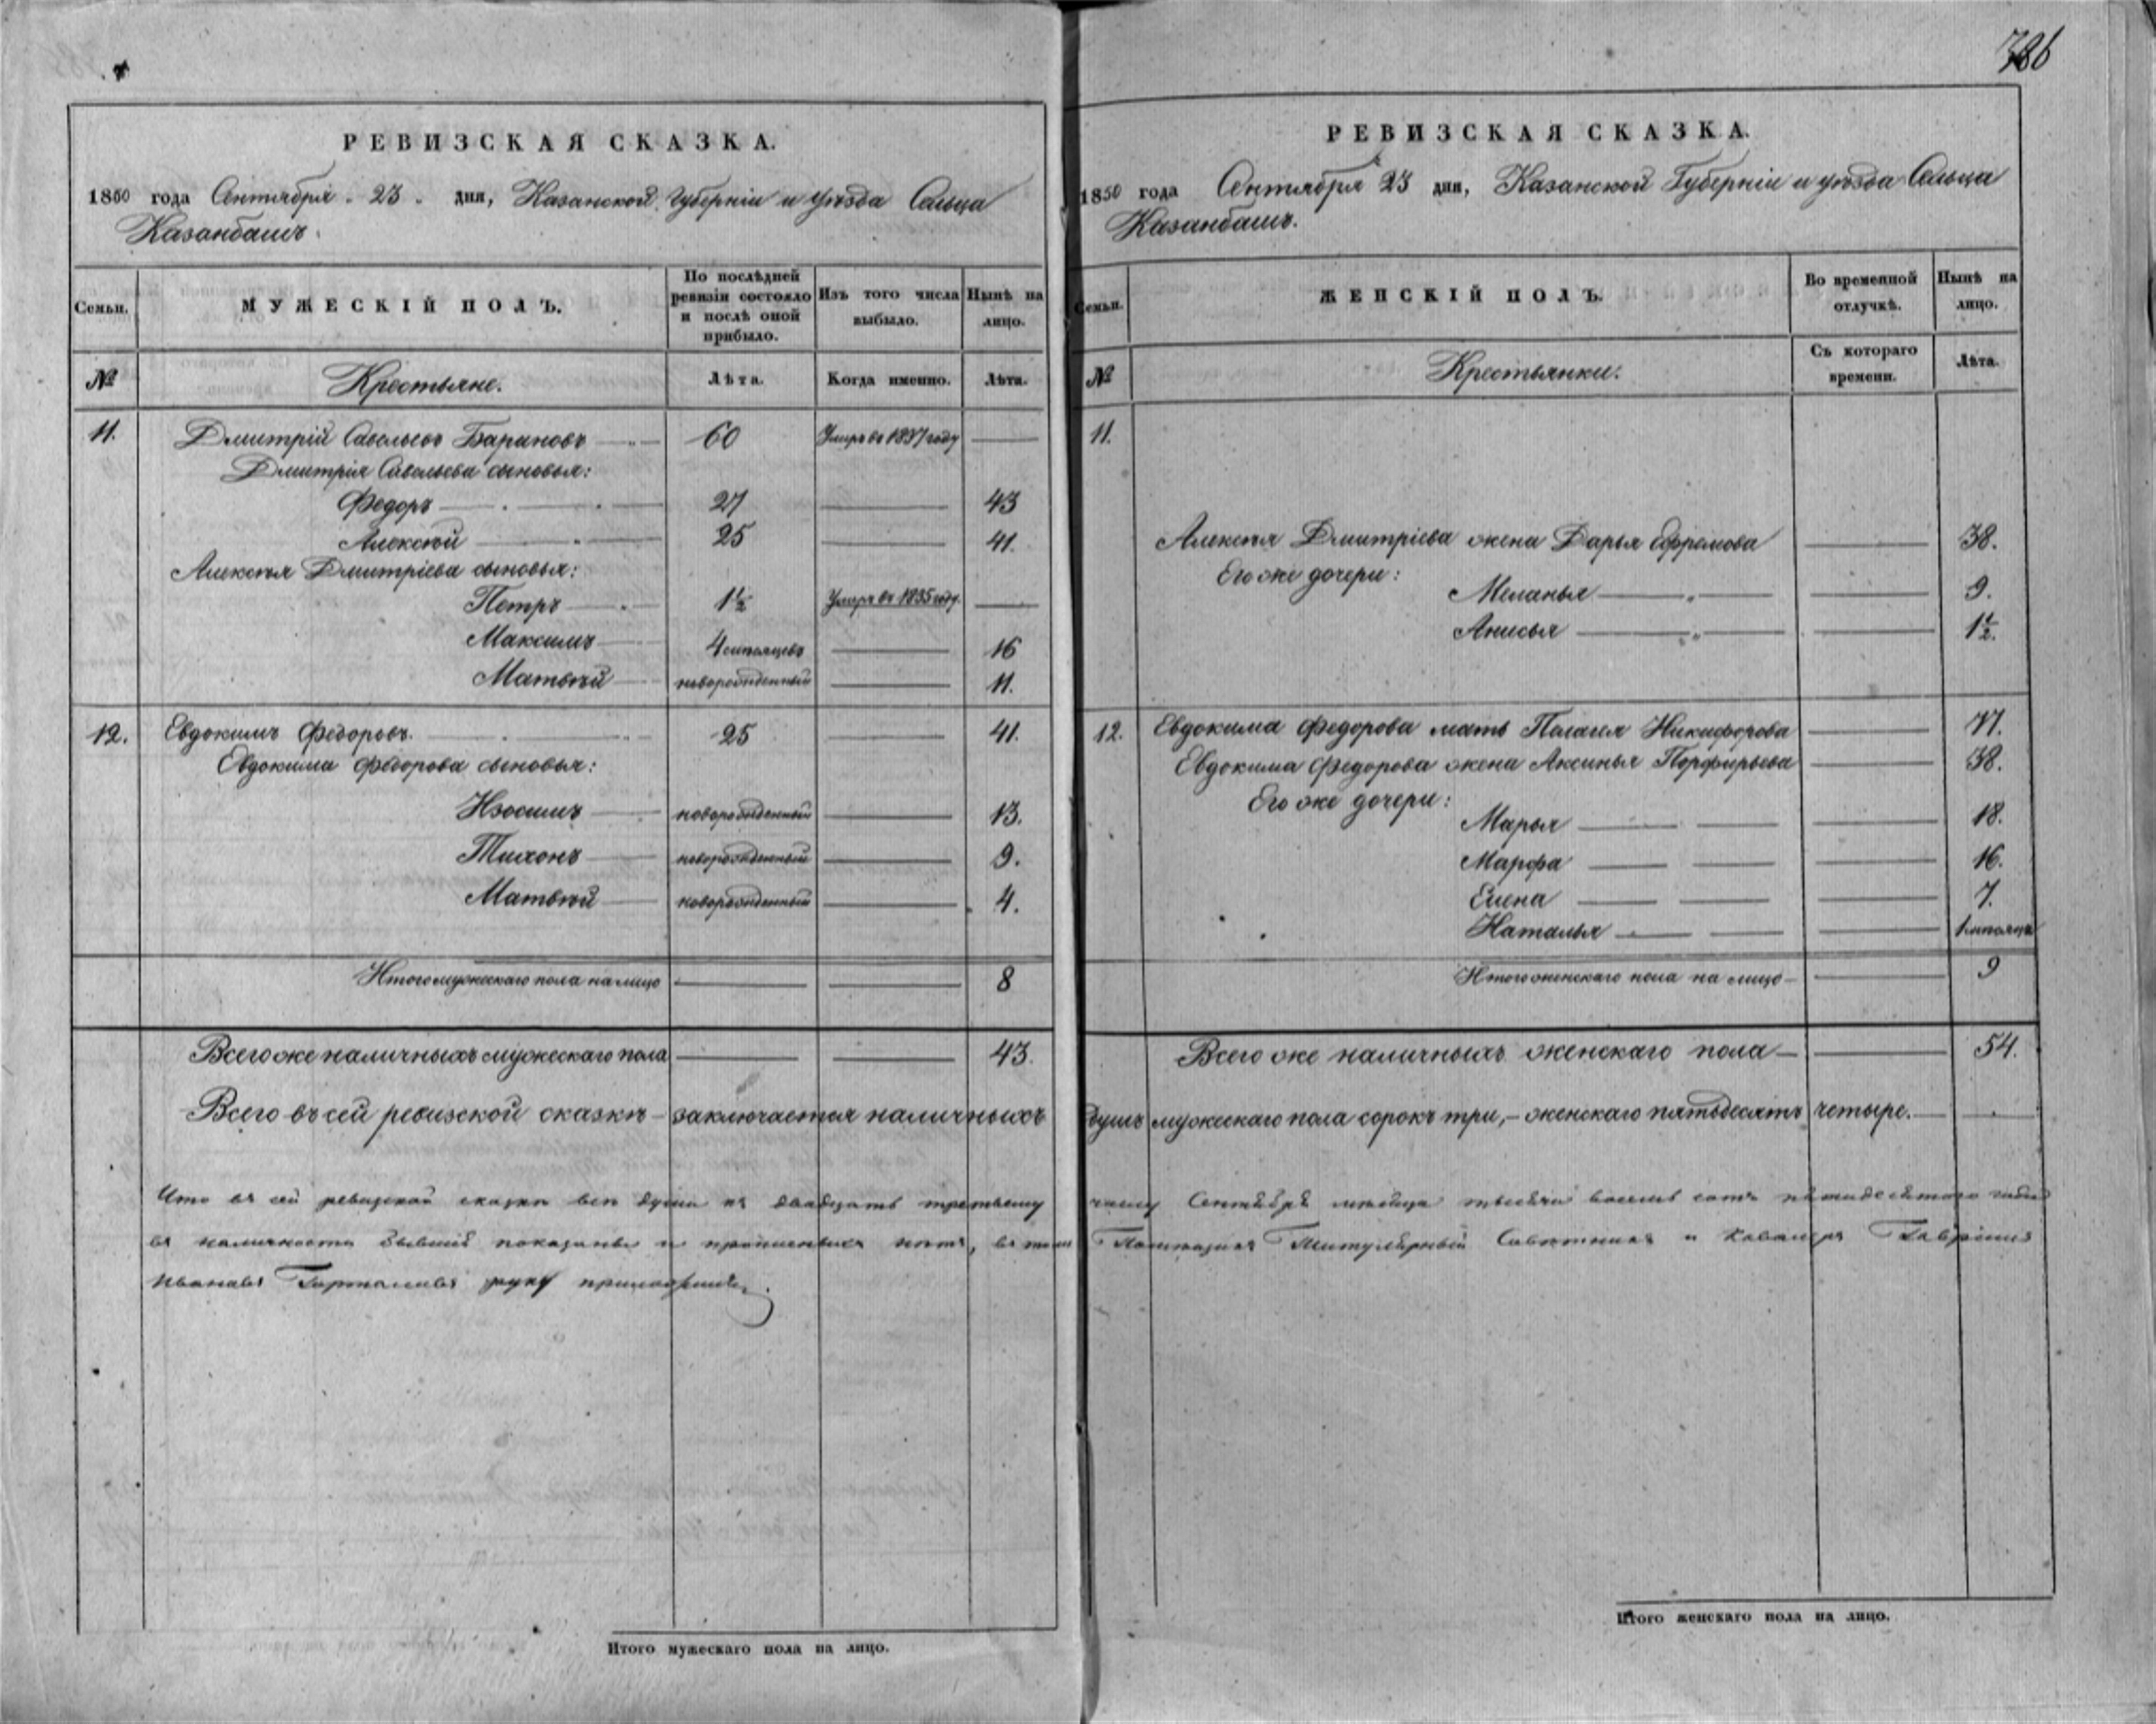 386
РЕВИЗСКАЯ СКАЗКА.
1850 года Сентября 23 дня, Казанской Губерніи и уѣзда Сельца
Казанбашъ.
Семьи.
МУЖЕСКІЙ ПОЛЪ.
По послѣдней
ревизіи состояло
и послѣ оной
прибыло.
Изъ того числа
выбыло.
Нынѣ на
лицо.
№
Крестьяне.
Лѣта.
Когда именно.
Лѣта.
11. Дмитрій Савельевъ Бариновъ 60 Умеръ въ 1837 году
Дмитрія Савельева сыновья:
Федоръ 27 43
Алексѣй 25 41.
Алексѣя Дмитріева сыновья:
Петръ 1½ Умеръ въ 1835 году.
Максимъ 4 мѣсяцевъ 16
Матвѣй новорожденный 11.
12. Евдокимъ Федоровъ. 25 41.
Евдокима Федорова сыновья:
Изосимъ новорожденный 13.
Тихонъ новорожденный 9.
Матвѣй новорожденный 4.
Итого мужескаго пола на лицо 8
Всего же наличныхъ мужескаго пола 43.
РЕВИЗСКАЯ СКАЗКА.
1850 года Сентября 23 дня, Казанской Губерніи и уѣзда Сельца
Казанбашъ.
Семьи.
ЖЕНСКІЙ ПОЛЪ.
Во временной
отлучкѣ.
Нынѣ на
лицо.
№
Крестьянки.
Съ котораго
времени.
Лѣта.
11.
Алексѣя Дмитріева жена Дарья Ефремова 38.
Его же дочери:
Меланья 9.
Анисья 1½.
12. Евдокима Федорова мать Пелагея Никифорова 77.
Евдокима Федорова жена Аксинья Порфирьева 38.
Его же дочери:
Марья 18.
Марфа 16.
Елена 7.
Наталья 1 мѣсяцъ
Итого женскаго пола на лицо 9
Всего же наличныхъ женскаго пола 54.
Всего въ сей ревизской сказкѣ заключается наличныхъ душъ мужескаго пола сорокъ три, женскаго пятьдесятъ четыре.
Что въ сей ревизской сказки всѣ души къ двадцать третьему числу Сентября мѣсяца тысяча восемь сотъ пятидесятаго года
въ наличности показаны и прописныхъ нѣтъ, въ томъ Титулярный Совѣтникъ и Кавалеръ Гаврила
Ивановъ руку приложилъ.
Итого мужескаго пола на лицо.
Итого женскаго пола на лицо.